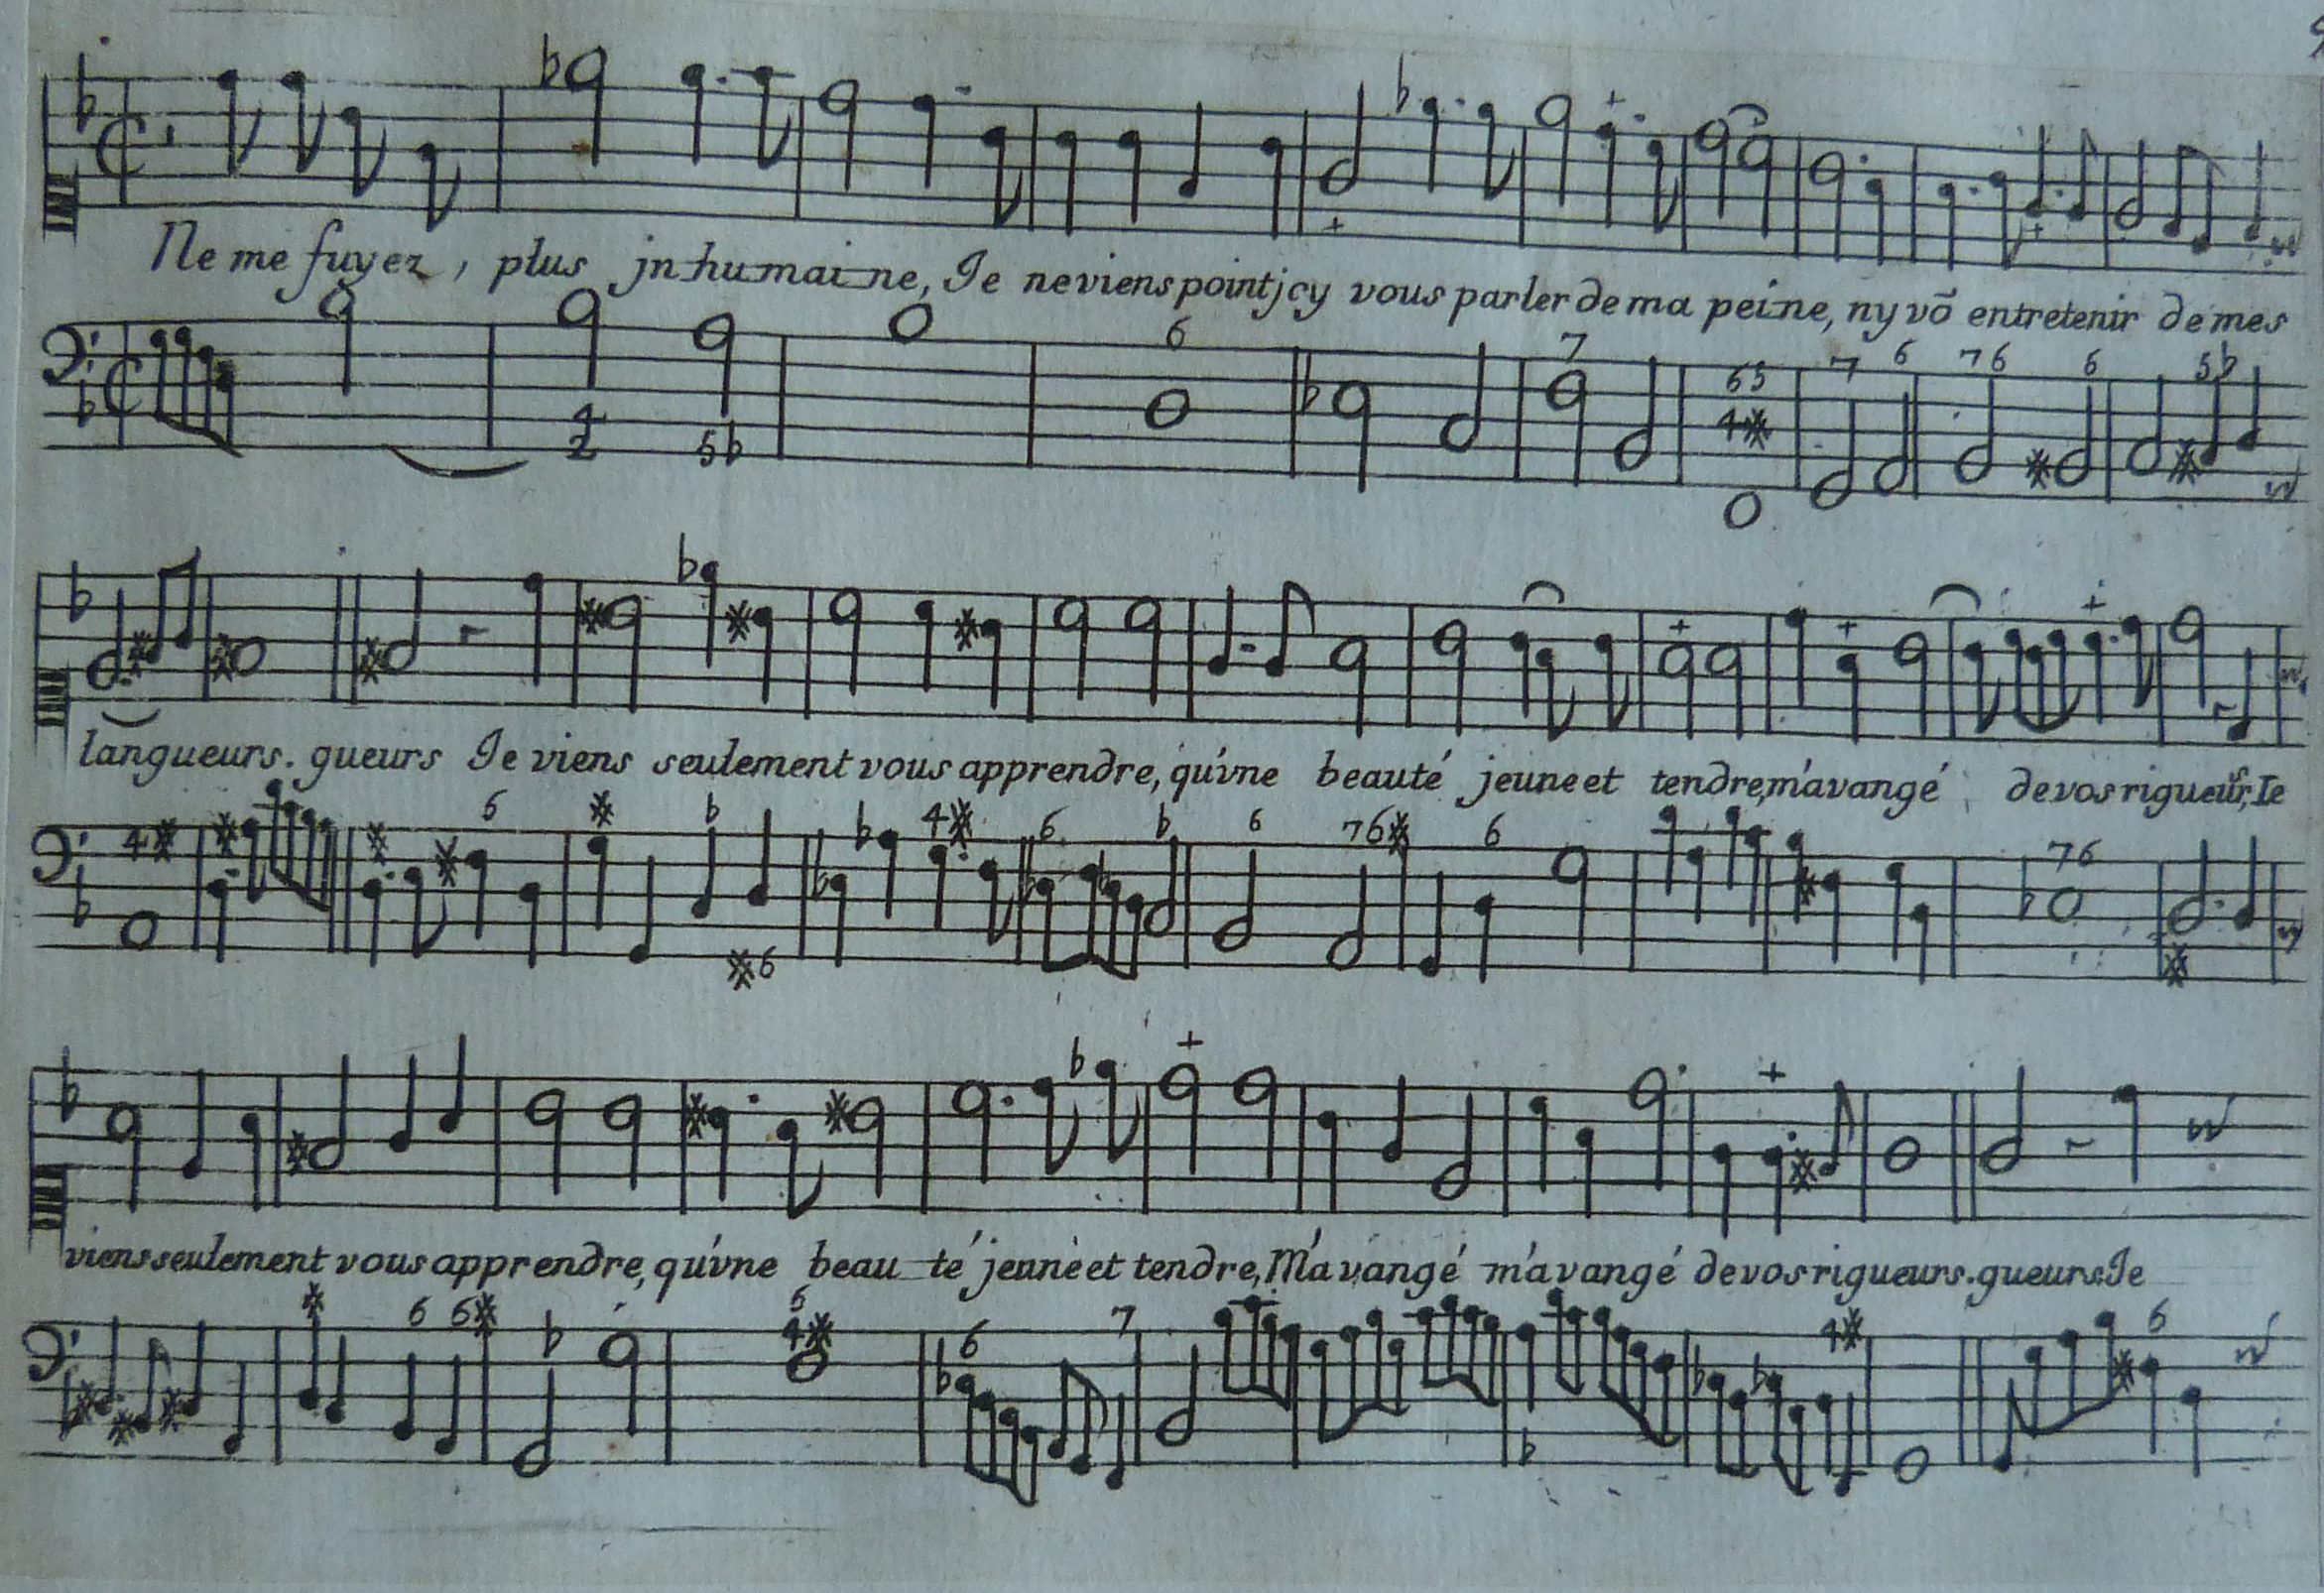 Ne me fuyez, plus jnhumaine, Je ne viens point jcy vous parler de ma peine, ny võ entretenir de mes
6 7 65 7 6 76 6 5b
4 4
2 5b
langueurs. gueurs Je viens seulement vous apprendre, qu'vne beauté jeune et tendre, m'a vangé de vos rigueurs, Ie
4 6 b 4 6 b 6 76 6 76
6
viens seulement vous apprendre, qu'vne beauté jeune et tendre, M'a vangé m'a vangé de vos rigueurs. gueurs. Je
6 6 b 6 6 7 4 6
4
b